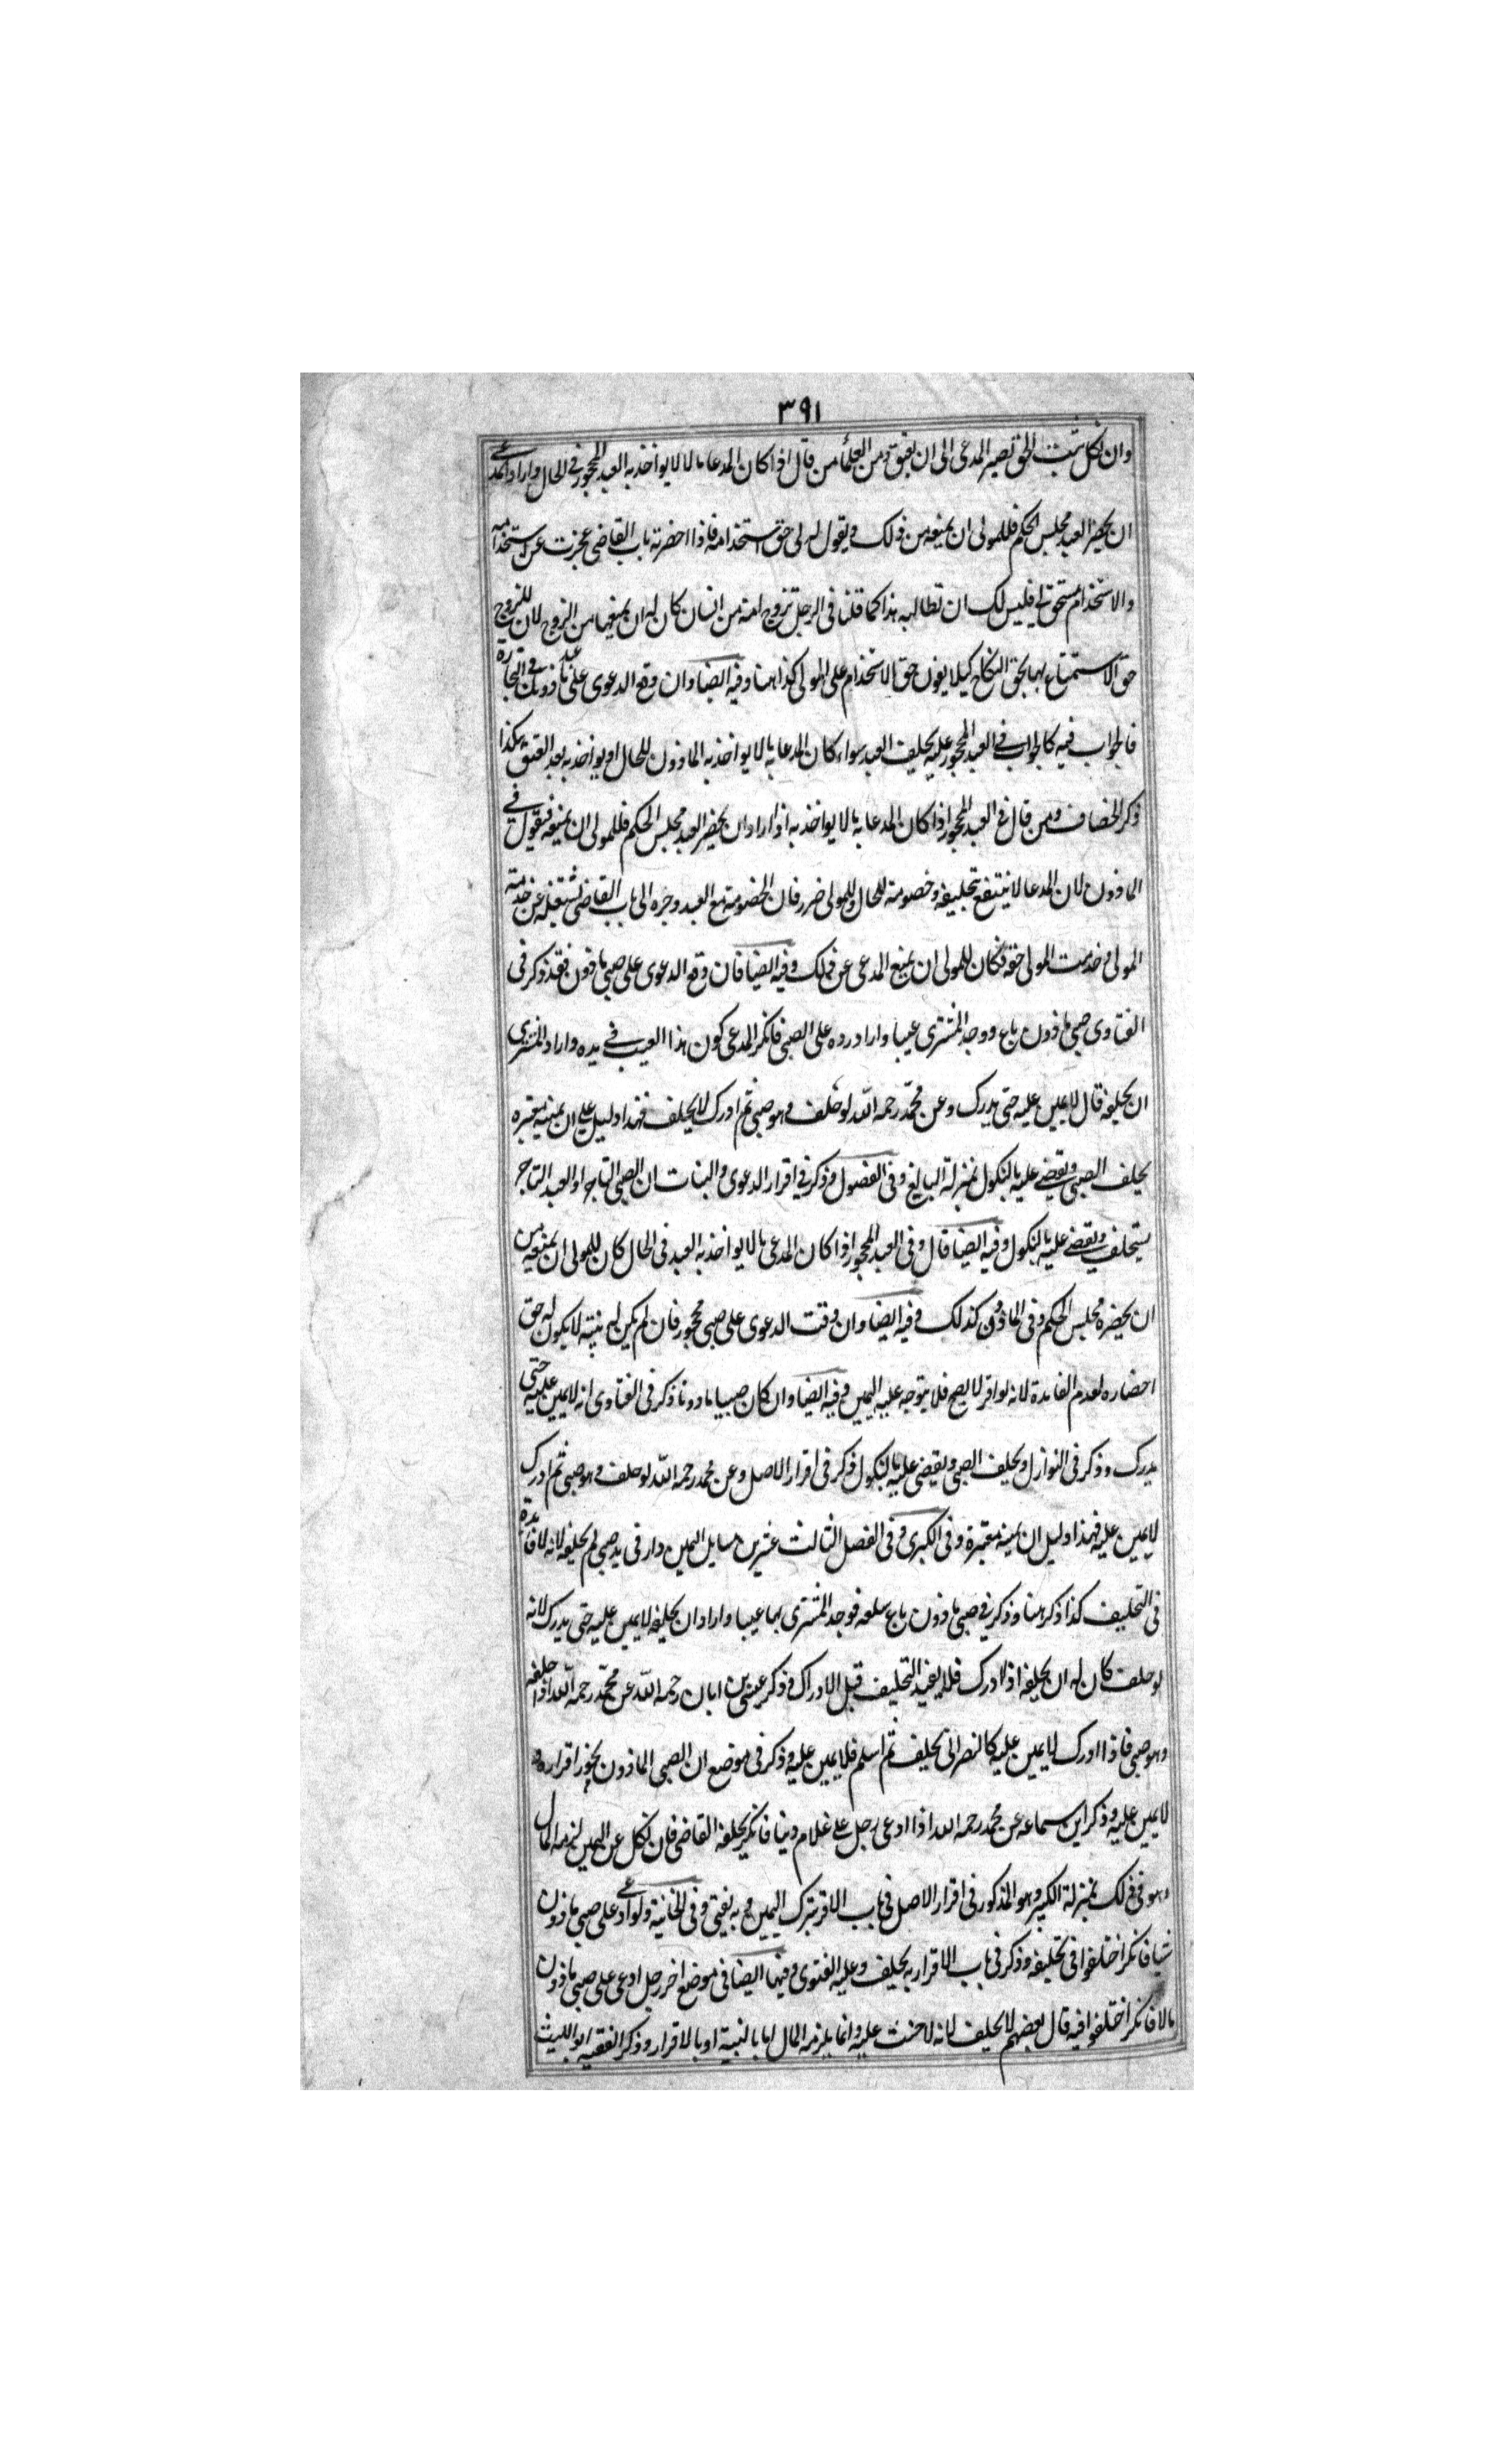 ٣٩١
وان نكل يثبت الحق تصير المدعى الى ان يعتق ومن العلماء من قال اذا كان المدعا مالا لا يواخذ به العبد المحجور فى الحال واراد المدعى
ان يحضر العبد مجلس الحكم فللمولى ان يمنعه من ذلك ويقول له لى حق استخدامه فاذا احضرته باب القاضى عجزت عن استخدامه
والاستخدام مستحق لى فليس لك ان تطالبه هذا كما قلنا فى الرجل تزوج امة من انسان كان له ان يمنعها من الزوج لان للزوج
حق الاستمتاع بها بحق النكاح كيلا يفوت حق الاستخدام على المولى كذا هنا وفيه ايضا وان وقع الدعوى على عبد ماذون فى التجارة
فالجواب فيه كالجواب فى العبد المحجور عليه يحلف العبد سواء كان المدعا به مالا يواخذ به الماذون للحال او يواخذ به بعد العتق هكذا
ذكر الخصاف ومن قال فى العبد المحجور اذا كان المدعا به مالا يواخذ به اذا اراد ان يحضر العبد مجلس الحكم فللمولى ان يمنعه فيقول فى
الماذون لان المدعا لا ينتفع بتحليفه وخصومته للحال وللمولى ضرر فان الخصومة مع العبد وجره الى باب القاضى تشتغله عن خدمته
المولى وخدمت المولى حقه فكان للمولى ان يمنع المدعى عن ذلك وفيه ايضا فان وقع الدعوى على صبى ماذون فقد ذكر فى
الفتاوى صبى ماذون باع ووجد المشترى عيبا واراد رده على الصبى فانكر المدعى كون هذا العيب فى يده واراد المشترى
ان يحلفه قال لا يمين عليه حتى يدرك وعن محمد رحمه الله لو حلف وهو صبى ثم ادرك لا يحلف فهذا دليل على ان يمينه معتبره
يحلف الصبى ويقضى عليه بالنكول بمنزلة البالغ وفى الفصول وذكر فى اقرار الدعوى والبينات ان الصبى التاجر او العبد التاجر
يستحلف ويقضى عليه بالنكول وفيه ايضا قال وفى العبد المحجور اذا كان المدعى مالا يواخذ به العبد فى الحال كان للمولى ان يمنعه من
ان يحضره مجلس الحكم وفى الماذون كذلك وفيه ايضا وان وقت الدعوى على صبى محجور فان لم يكن له بينته لا يكون له حق
احضاره لعدم الفايدة لانه لو اقر لا يصح فلا يتوجه عليه اليمين وفيه ايضا وان كان صبيا ماذونا ذكر فى الفتاوى انه لا يمين عليه حتى
يدرك وذكر فى النوازل ويحلف الصبى ويقضى عليه بالنكول ذكر فى اقرار الاصل وعن محمد رحمه الله لو حلف وهو صبى ثم ادرك
لا يمين عليه فهذا دليل ان يمينه معتبرة وفى الكبرى وفى الفصل الثالث عشر من مسايل اليمين دار فى يد صبى لم يحلفه لانه لا فايدة
فى التحليف كذا ذكر هنا وذكر فى صبى ماذون باع سلعه فوجد المشترى بها عيبا واراد ان يحلفه لا يمين عليه حتى يدرك لانه
لو حلف كان له ان يحلفه اذا ادرك فلا يفيد التحليف قبل الادراك وذكر عيسى بن ابان رحمه الله عن محمد رحمه الله اذا حلفه
وهو صبى فاذا ادرك لا يمين عليه كالنصرانى يحلف ثم اسلم فلا يمين عليه وذكر فى موضع ان الصبى الماذون يجوز اقراره و
لا يمين عليه وذكر ابن سماعه عن محمد رحمه الله اذا ادعى رجل على غلام دينا فانكر يحلفه القاضى فان نكل عن اليمين لزمه المال
وهو فى ذلك بمنزلة الكبير وهو المذكور فى اقرار الاصل فى باب الاقر بترك اليمين وبه يفتى وفى الخانية ولو ادعى على صبى ماذون
شيا فانكر اختلفوا فى تحليفه وذكر فى باب الاقرار به يحلف وعليه الفتوى وفيها ايضا فى موضع اخر رجل ادعى على صبى ماذون
مالا فانكر اختلفوا فيه قال بعضهم لا يحلف لانه لا حنث عليه وانما يلزمه المال اما بالبينة او بالاقرار وذكر الفقيه ابو الليث